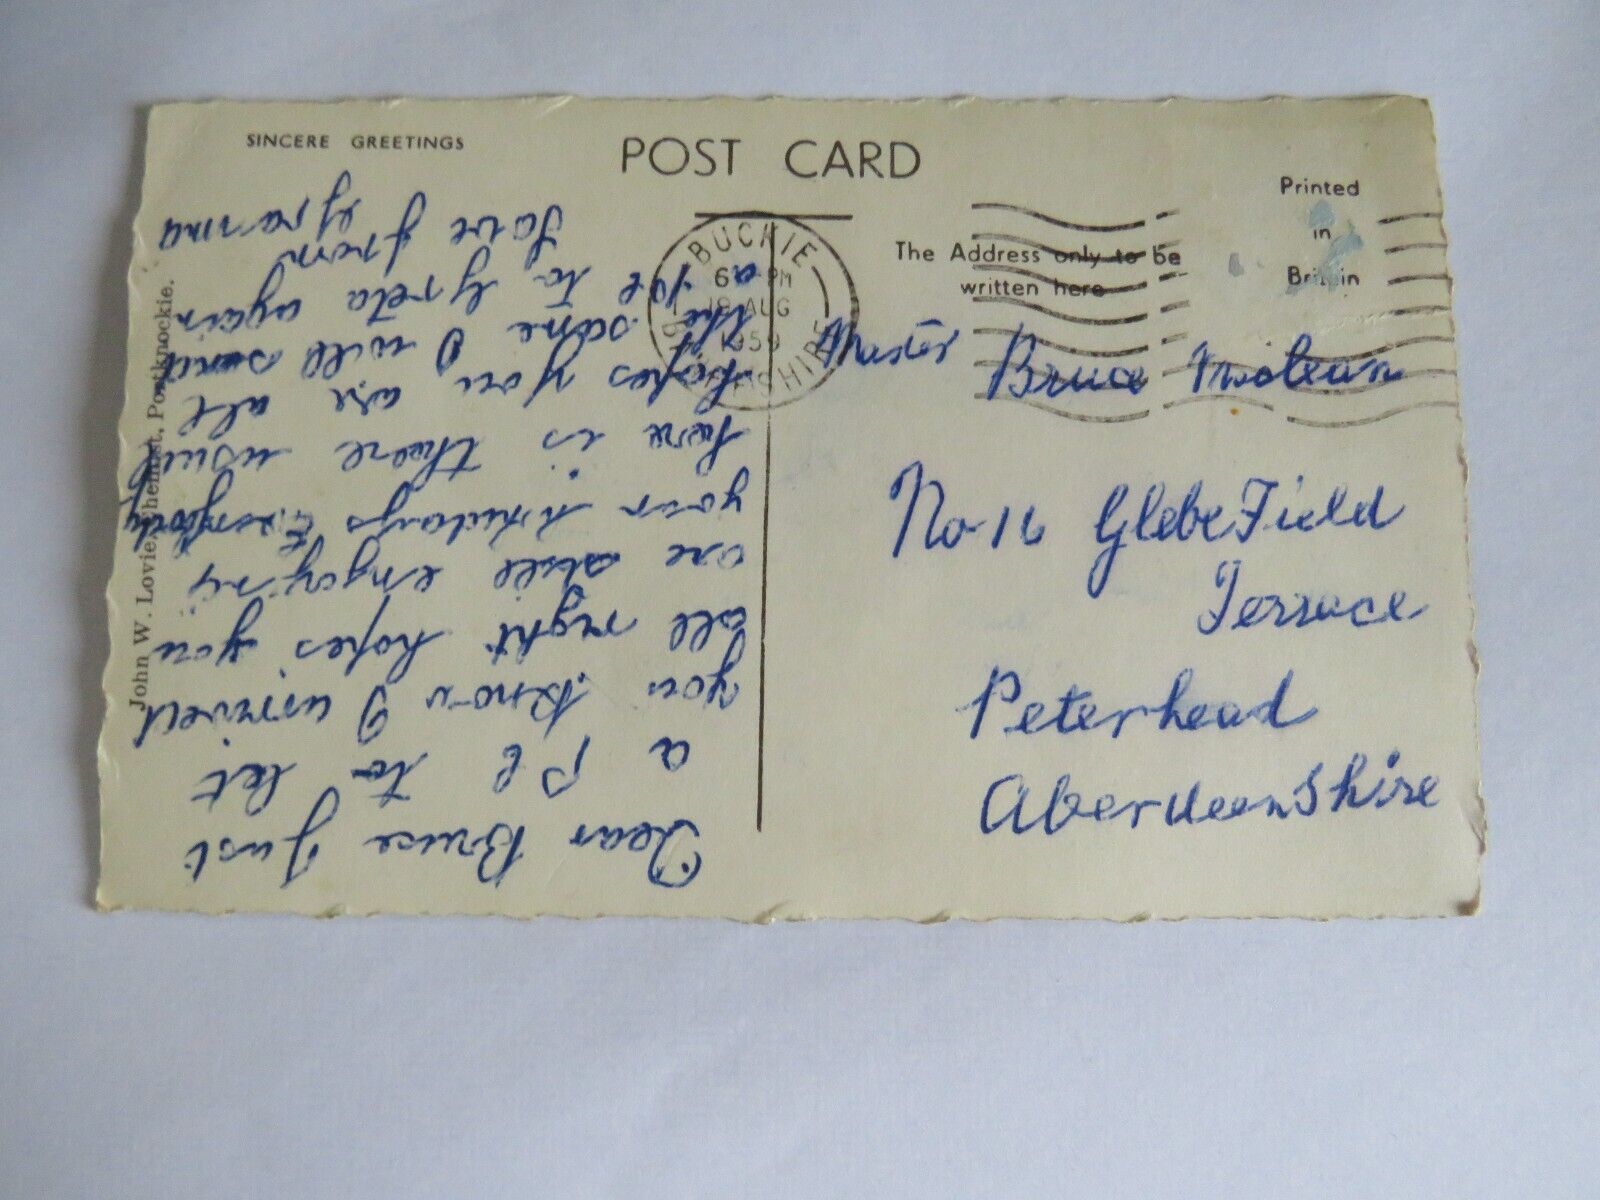 SINCERE GREETINGS
POST CARD
Printed
in
Britain
The Address only to be
written here
BUCKIE
6 PM
18 AUG
1959
BANFFSHIRE
John W. Lovie, Chemist, Portknockie.
Master Bruce
No 16 Glebe Field
Terrace
Peterhead
Aberdeenshire
Dear Bruce Just
a P C to let
you know I arrived
all right hopes you
are still enjoying
your holidays Everybody
here is there usual
hopes you are all
the same I will send
a pc to Greta again
Love from
Granma